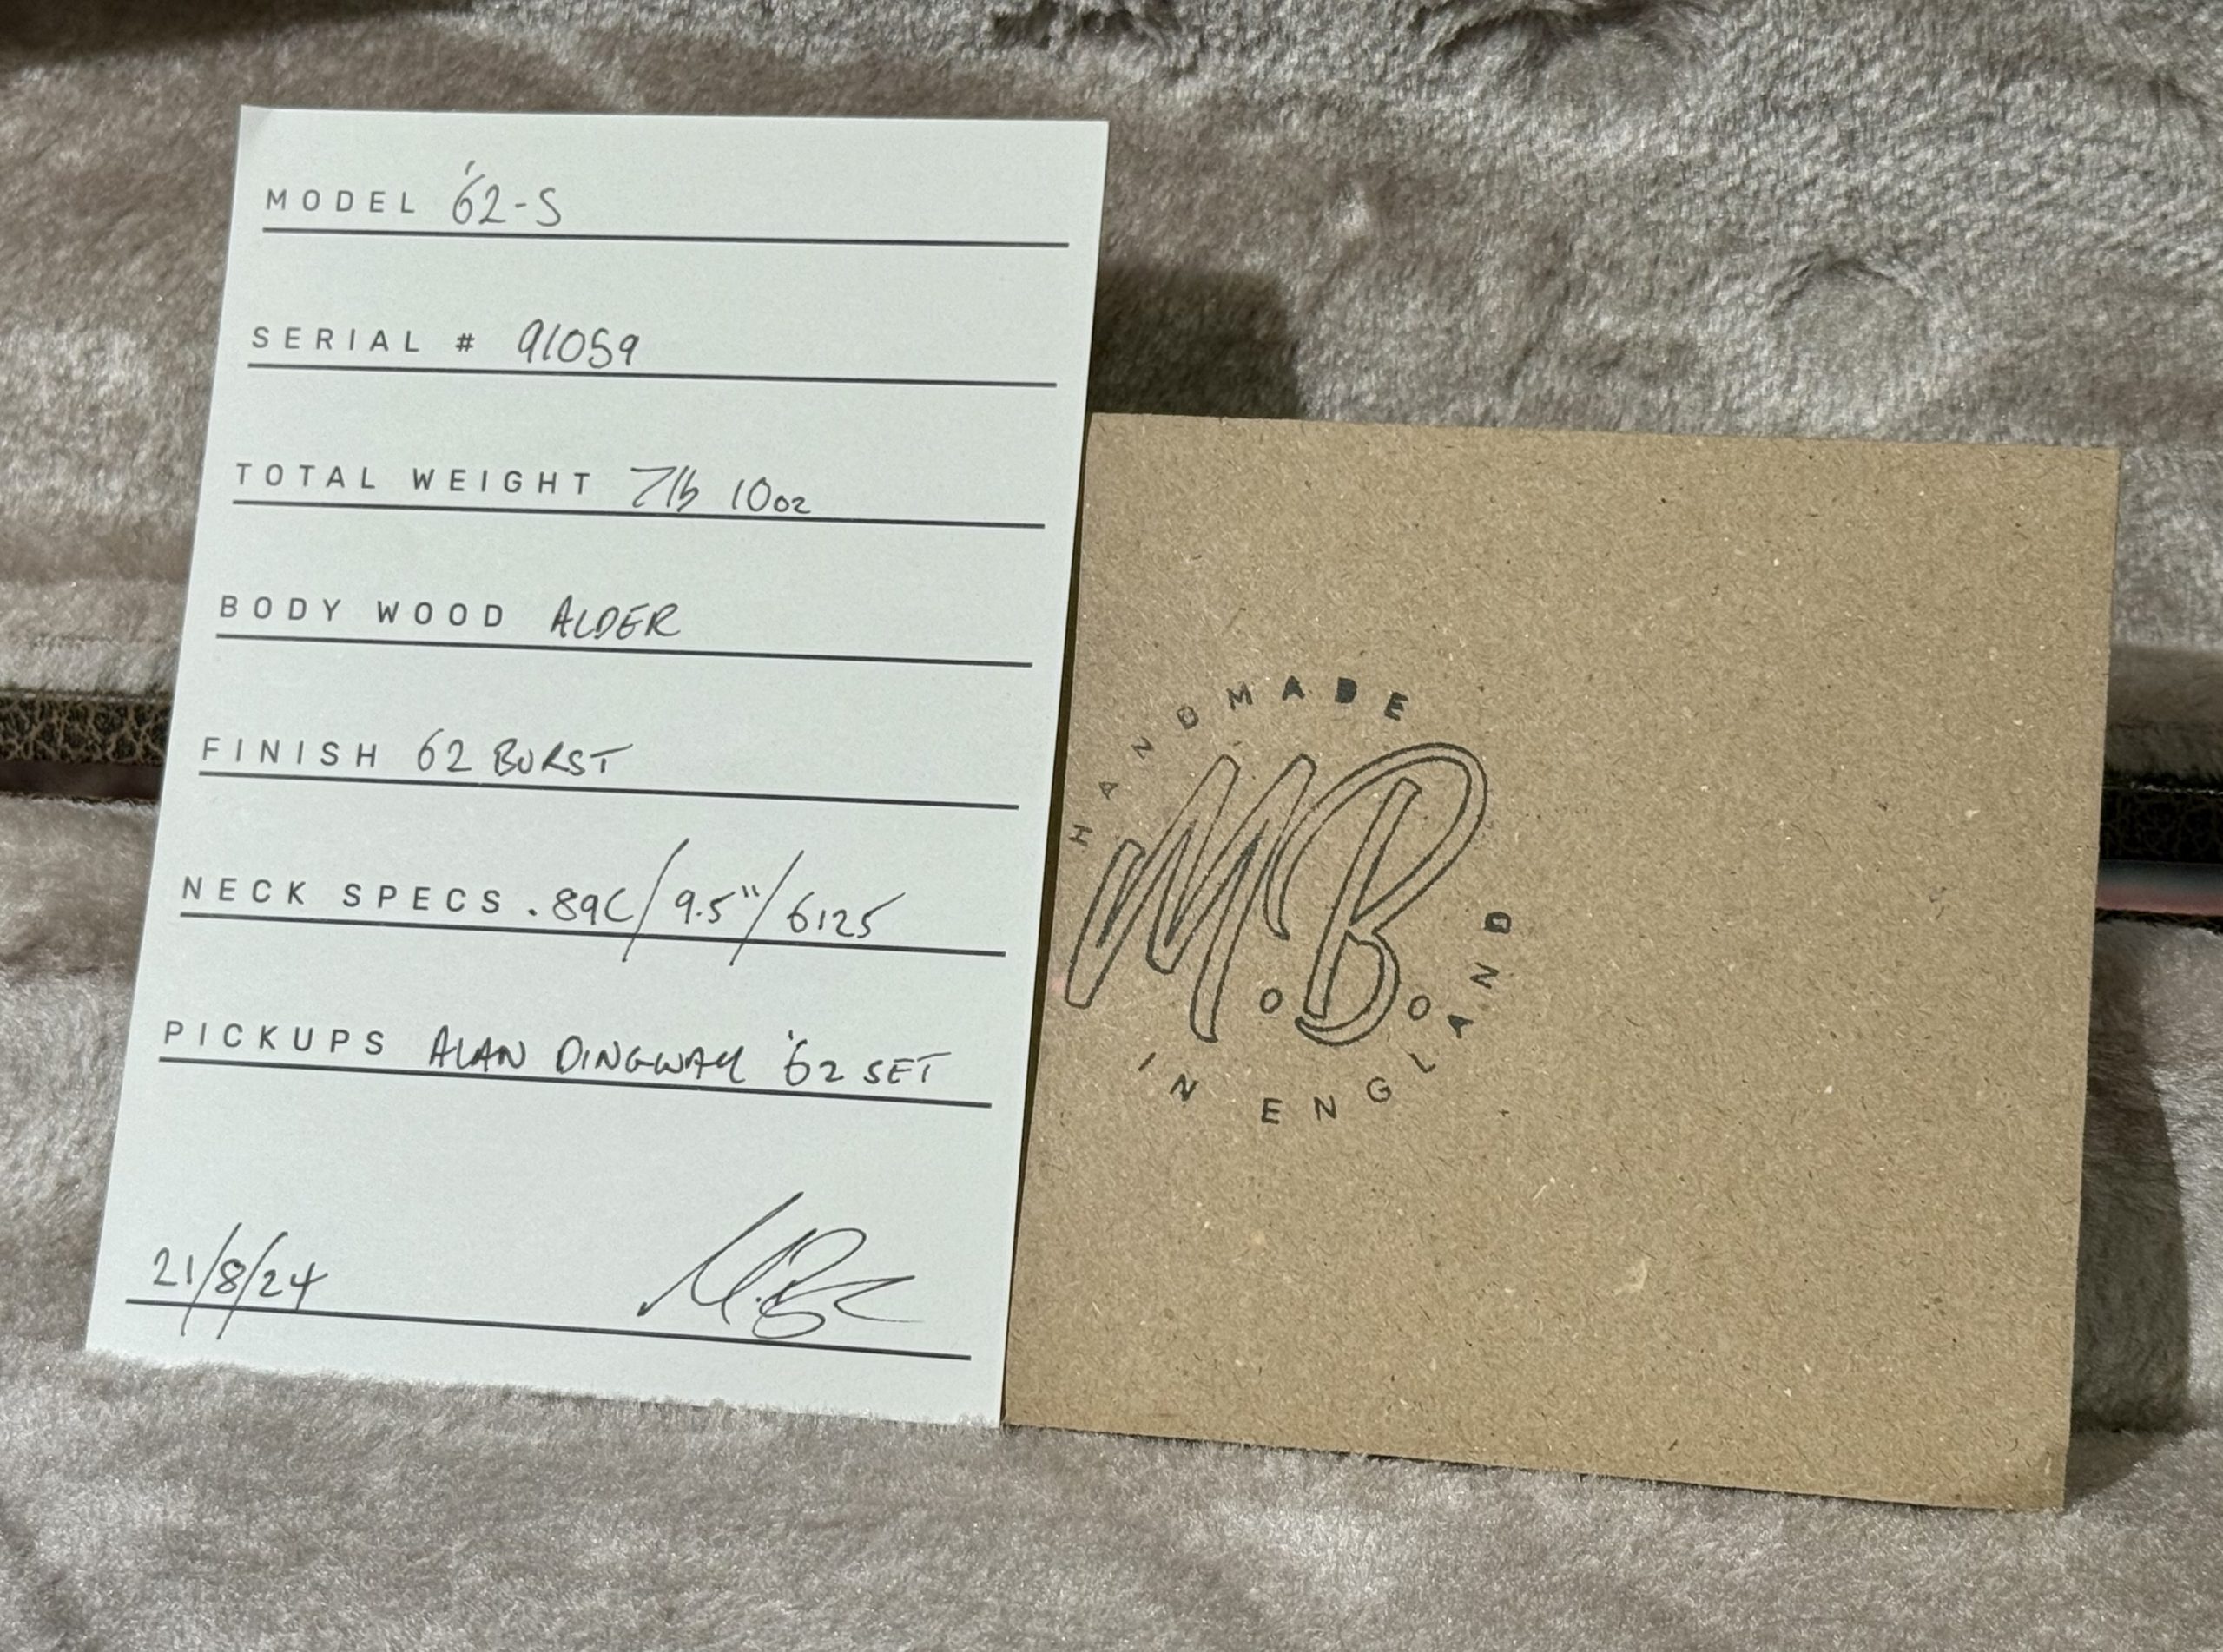 MODEL '62-S
SERIAL # 91059
TOTAL WEIGHT 7lb 10oz
BODY WOOD ALDER
FINISH 62 BURST
NECK SPECS .89C/9.5"/6125
PICKUPS ALAN DINGWALL '62 SET
21/8/24 M.B
HANDMADE
M.B.
IN ENGLAND